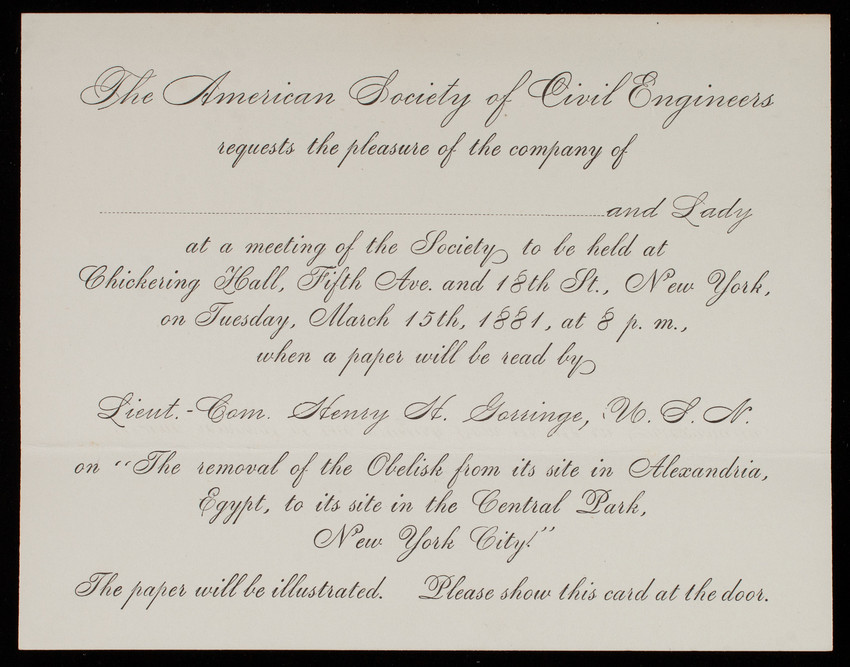 The American Society of Civil Engineers
requests the pleasure of the company of
and Lady
at a meeting of the Society to be held at
Chickering Hall, Fifth Ave. and 18th St., New York,
on Tuesday, March 15th, 1881, at 8 p. m.,
when a paper will be read by
Lieut.-Com. Henry H. Gorringe, U. S. N.
on "The removal of the Obelisk from its site in Alexandria,
Egypt, to its site in the Central Park,
New York City."
The paper will be illustrated. Please show this card at the door.